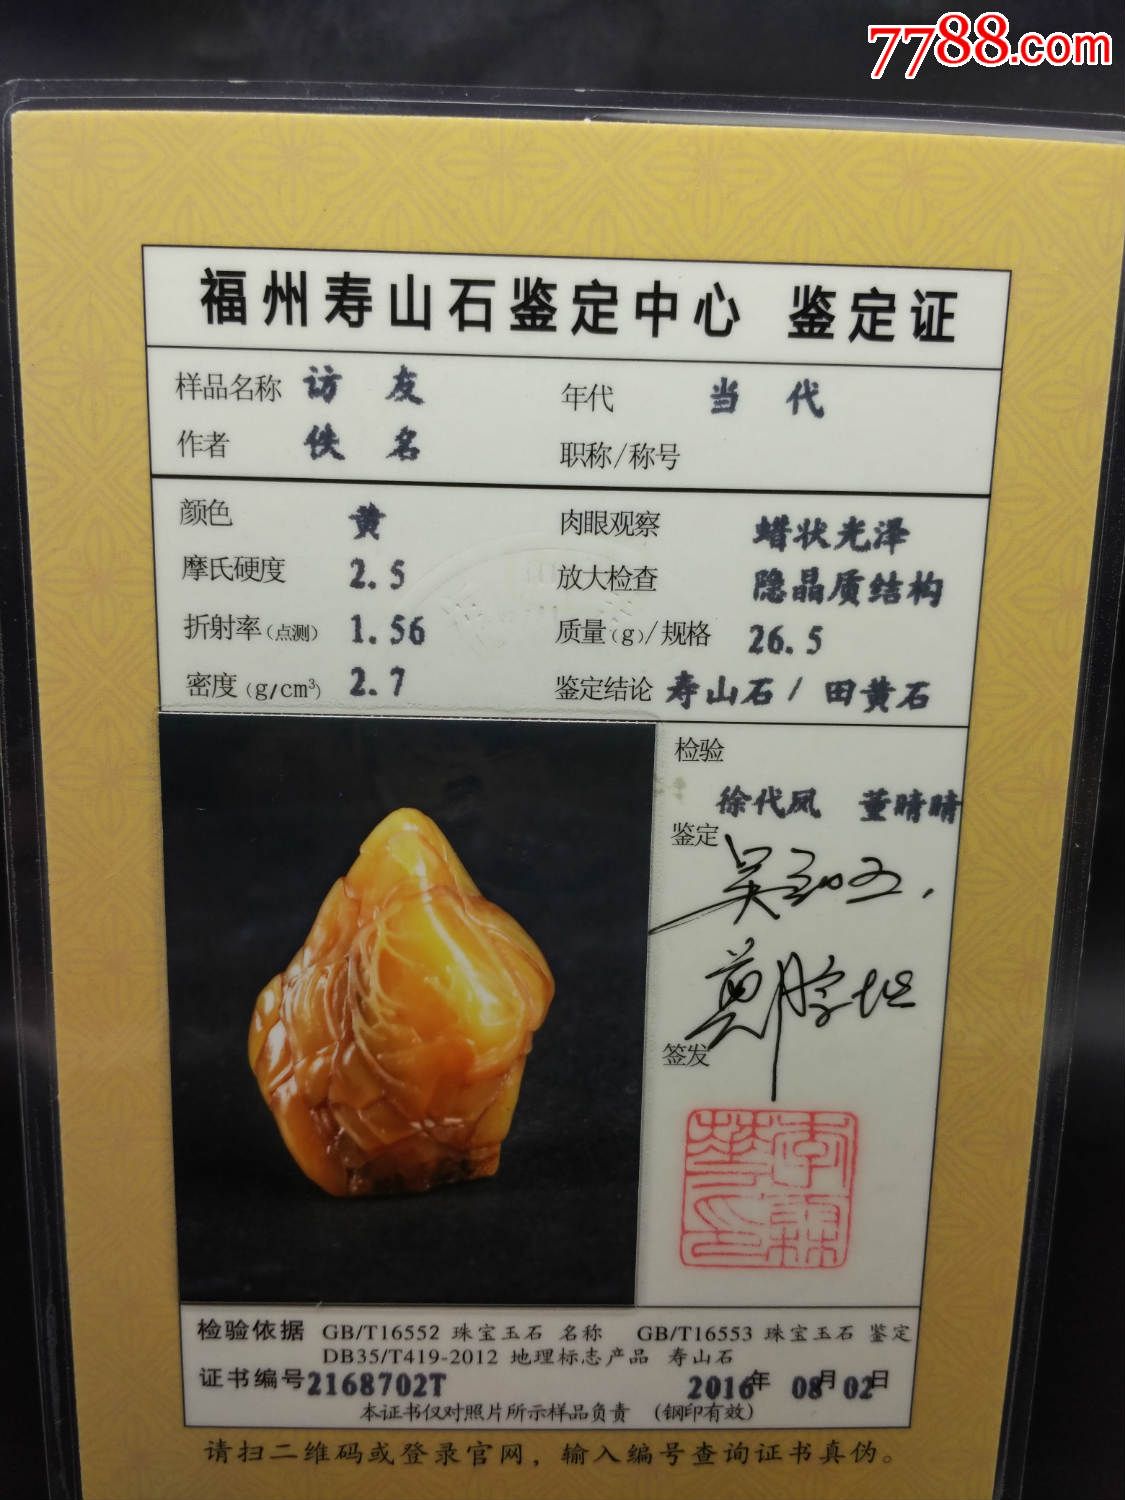 7788.com
福州寿山石鉴定中心 鉴定证
样品名称 访友 年代 当代
作者 佚名 职称/称号
颜色 黄 肉眼观察 蜡状光泽
摩氏硬度 2.5 放大检查 隐晶质结构
折射率(点测) 1.56 质量(g)/规格 26.5
密度(g/cm³) 2.7 鉴定结论 寿山石/田黄石
检验
徐代凤 董晴晴
鉴定
签发
检验依据 GB/T16552 珠宝玉石 名称 GB/T16553 珠宝玉石 鉴定
DB35/T419-2012 地理标志产品 寿山石
证书编号2168702T 2016年 08月 02日
本证书仅对照片所示样品负责 (钢印有效)
请扫二维码或登录官网，输入编号查询证书真伪。